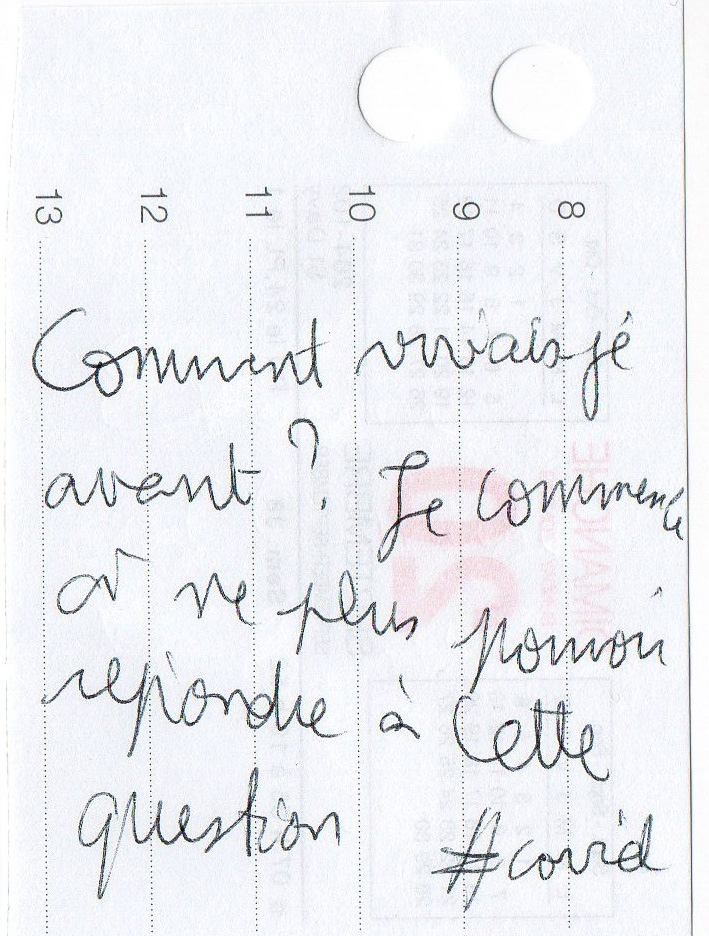 13 12 11 10 9 8
Comment vivais je
avant ? Je commence
à ne plus pouvoir
répondre à cette
question #covid